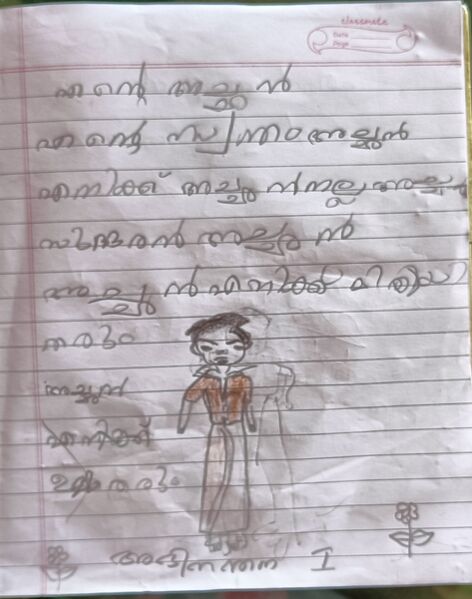 classmate
Date
Page
എന്റെ അച്ഛൻ
എന്റെ സ്വന്തം അച്ഛൻ
എനിക്ക് അച്ഛൻ നല്ല അച്ഛ
സുന്ദരൻ അച്ഛൻ
അച്ഛൻ എനിക്ക് മിഠായി
തരും
അച്ഛൻ
എനിക്ക്
തരും
I